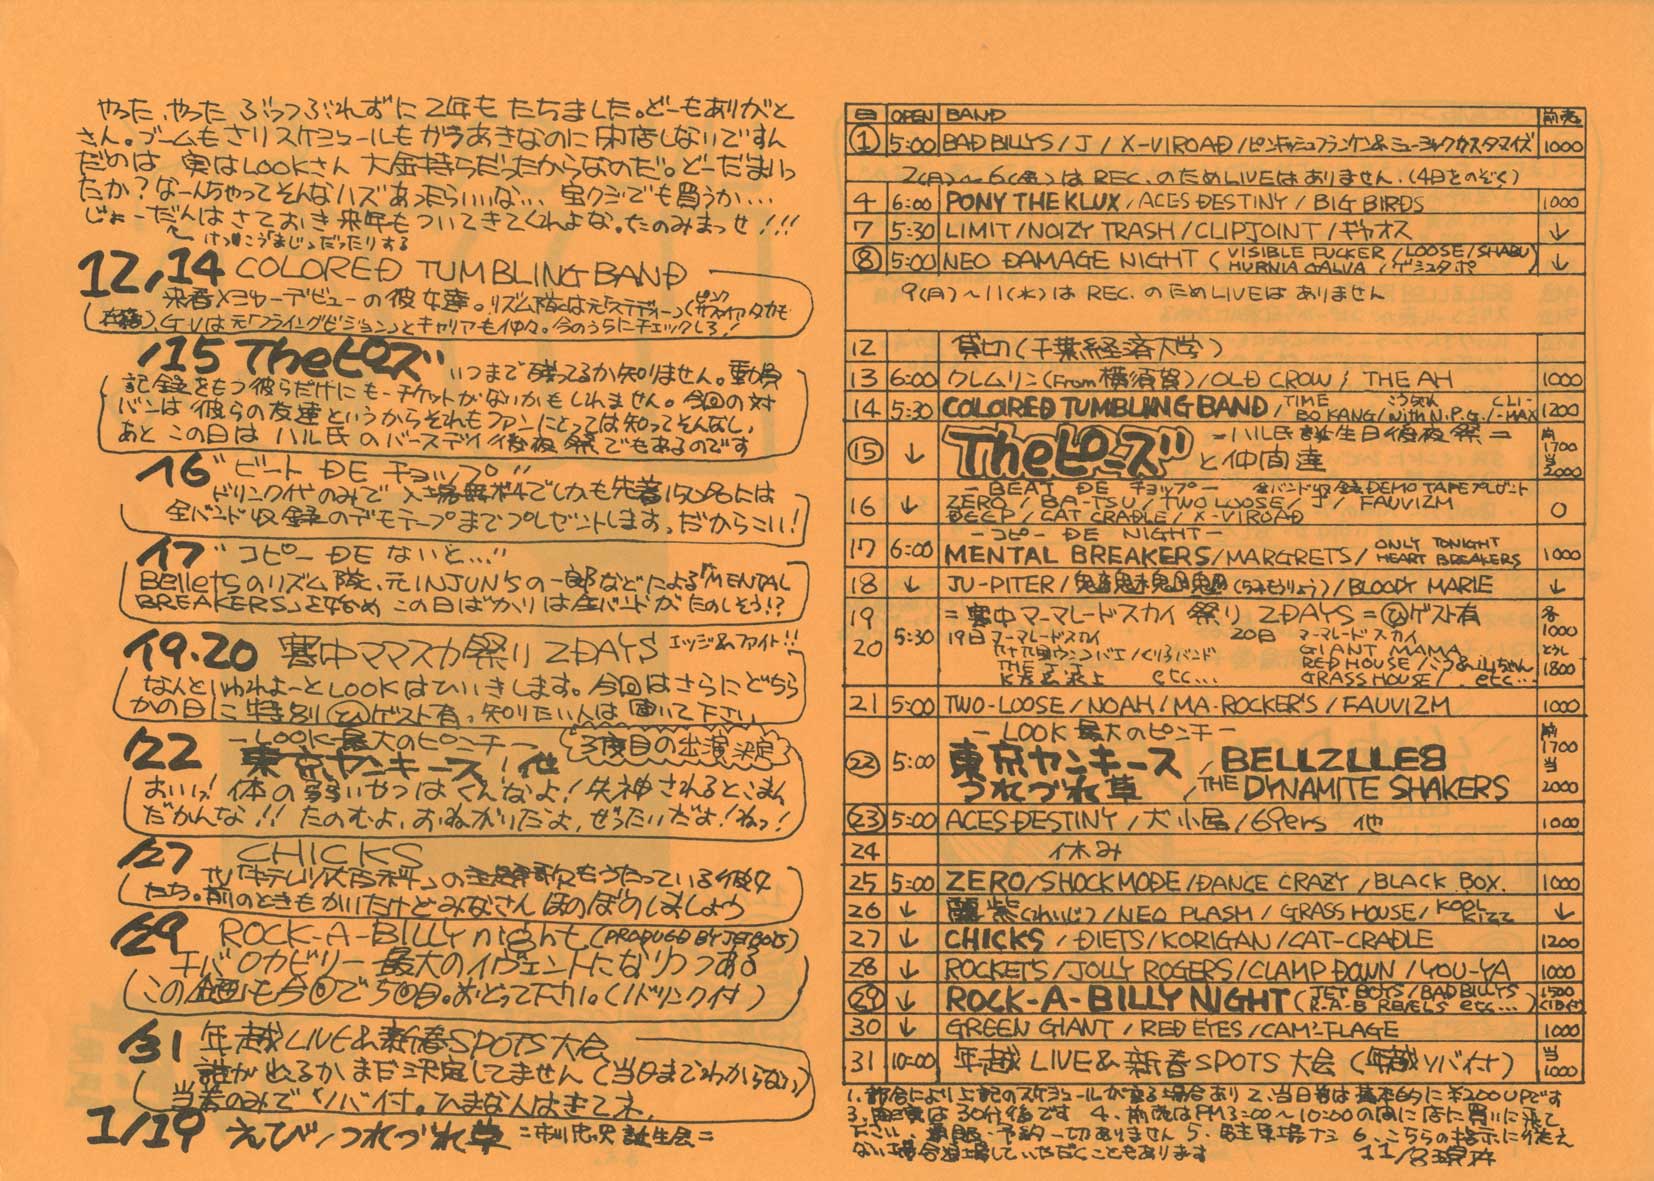 やった、やった ぶっつぶれずに 2年も たちました。どーもありがと
さん。ブームもさりスケジュールもガラあきなのに 閉店しないですん
だのは 実はLOOKさん 大金持ちだったからなのだ。どーだまいっ
たか？なーんちゃってそんなハズあったらいいな… 宝クジでも買うか…
じょーだんはさておき来年もついてきてくれよな。たのみまっせ!!!
けっこうまじだったりする
12/14 COLORED TUMBLING BAND
来春メジャーデビューの彼女達。リズム隊は元「ステディー」(ピンクサファイア タカも
在籍)、G.Vは元「フライングビジョン」とキャリアも仲々。今のうちにチェックしろ!
/15 Theピーズ
いつまで残ってるか知りません。動員
記録をもつ彼らだけにもーチケットがないかもしれません。今回の対
バンは彼らの友達というからそれもファンにとっては知ってそんなし、
あと この日は ハル氏のバースデイ後夜祭でもあるのです
/16 "ビート DE チョップ"
ドリンク代のみで入場無料でしかも先着150名には
全バンド収録のデモテープまでプレゼントします。だからこい!
/17 "コピー DE ないと…"
Belletsのリズム隊、元INJUN'Sの一郎などによる「MENTAL
BREAKERS」を始め この日ばかりは全バンドがたのしそう!?
/19.20 寒中ママスカ祭り 2DAYS エッジ&ファイト!!
なんといわれよーとLOOKはひいきします。今回はさらにどちら
かの日に特別(ひ)ゲスト有。知りたい人は聞いて下さい
/22 -LOOK最大のピンチー 3度目の出演決定
東京ヤンキース/他
おいっ! 体の弱いやつはくんなよ! 失神されるとこまん
だかんな!! たのむよ、おねがいだよ、ぜったいだよ! ねっ!
/27 CHICKS
TV「キテレツ大百科」の主題歌もうたっている彼女
たち。前のときもかいたけどみなさん ほのぼのしましょう
/29 ROCK-A-BILLY night (PRODUCED BY JET BOYS)
千バロカビリー最大のイヴェントになりつつある
この企画も今回で5回目。おどって下さい。(1ドリンク付)
/31 年越LIVE&新春SPOTS大会
誰が出るかまだ決定してません(当日までわからない)
当券のみで ソバ付。ひまな人はきてネ
1/19 えび/つれづれ草 =市川 誕生会=
日 OPEN BAND 前売
① 5:00 BAD BILLYS / J / X-VIROAD /ピンキッシュフランケン&ミュージックカスタマイズ 1000
2(月)～6(金)は REC.のためLIVEはありません.(4日をのぞく)
4 6:00 PONY THE KLUX /ACES DESTINY / BIG BIRDS 1000
7 5:30 LIMIT/NOIZY TRASH/CLIPJOINT/ギャオス ↓
⑧ 5:00 NEO DAMAGE NIGHT ( VISIBLE FUCKER /LOOSE/SHABU
HURNIA GALVA /ゲシュタポ ) ↓
9(月)～11(水)は REC.のためLIVEは ありません
12 貸切(千葉経済大学)
13 6:00 クレムリン(From横須賀)/OLD CROW / THE AH 1000
14 5:30 COLORED TUMBLING BAND / TIME BO KANG/ with N.P.G./CLI-MAX 1200
⑮ ↓ Theピーズ と仲間達 -ハル氏誕生日後夜祭= 前1700 当2000
- BEAT DE チョップー 全バンド収録DEMO TAPEプレゼント
16 ↓ ZERO / BA-TSU / TWO LOOSE / J / FAUVIZM 0
DEEP / CAT CRADLE / X-VIROAD
-コピー DE NIGHT-
17 6:00 MENTAL BREAKERS/MARGRETS/ ONLY TONIGHT HEART BREAKERS 1000
18 ↓ JU-PITER / (ちみもうりょう)/BLOODY MARIE ↓
19 =寒中マーマレードスカイ 祭り 2DAYS= (ひ)ゲスト有 各1000
20 5:30 19日 マーマレードスカイ 20日 マーマレードスカイ とうし1800
/くりるバンド GIANT MAMA
THE J.J RED HOUSE /
etc… GRASS HOUSE / etc…
21 5:00 TWO-LOOSE / NOAH / MA-ROCKER'S / FAUVIZM 1000
- LOOK 最大のピンチー
㉒ 5:00 東京ヤンキース / BELLZLLEB 前1700 当2000
つれづれ草 /THE DYNAMITE SHAKERS
㉓ 5:00 ACES DESTINY / 犬小屋 /69ers 他 1000
24 休み
25 5:00 ZERO/SHOCK MODE /DANCE CRAZY /BLACK BOX. 1000
26 ↓ 麗紫(れいじ) / NEO PLASM / GRASS HOUSE / KOOL KIZZ ↓
27 ↓ CHICKS / DIETS/KORIGAN/CAT-CRADLE 1200
28 ↓ ROCKETS/JOLLY ROGERS/CLAMP DOWN /YOU-YA 1000
㉙ ↓ ROCK-A-BILLY NIGHT ( JET BOYS/BAD BILLYS R.A-B REBELS etc… ) 1500 (1D付)
30 ↓ GREEN GIANT / RED EYES / CAM'FLAGE 1000
31 10:00 年越LIVE&新春SPOTS大会(年越ソバ付) 当1000
1.都合により上記のスケジュールが変る場合あり 2、当日券は基本的に¥200UPです
3、開演は30分後です 4、前売はPM3:00～10:00の間に店に買いに来て
下さい。通販、予約一切ありません 5、駐車場ナシ 6、こちらの指示に従え
ない場合退場していただくこともあります
11/8現在